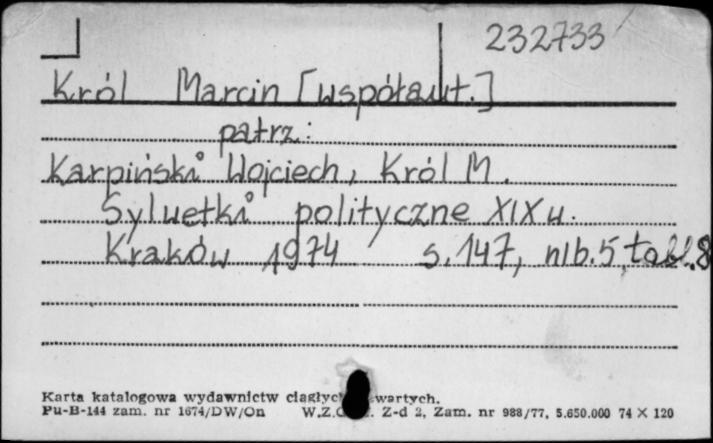 232733
Król Marcin [współaut.]
patrz:
Karpiński Wojciech, Król M.
Sylwetki polityczne XIX w.
Kraków 1974 s. 147, nlb. 5, tabl. 8
Karta katalogowa wydawnictw ciągłyc wartych.
Pu-B-144 zam. nr 1674/DW/On W.Z. Z-d 2, Zam. nr 988/77, 5.650.000 74 X 120